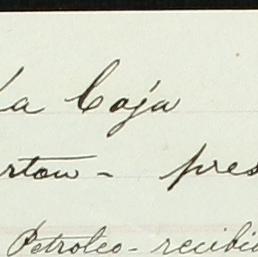 la Caja
rtow - pres
Petroleo - recibi